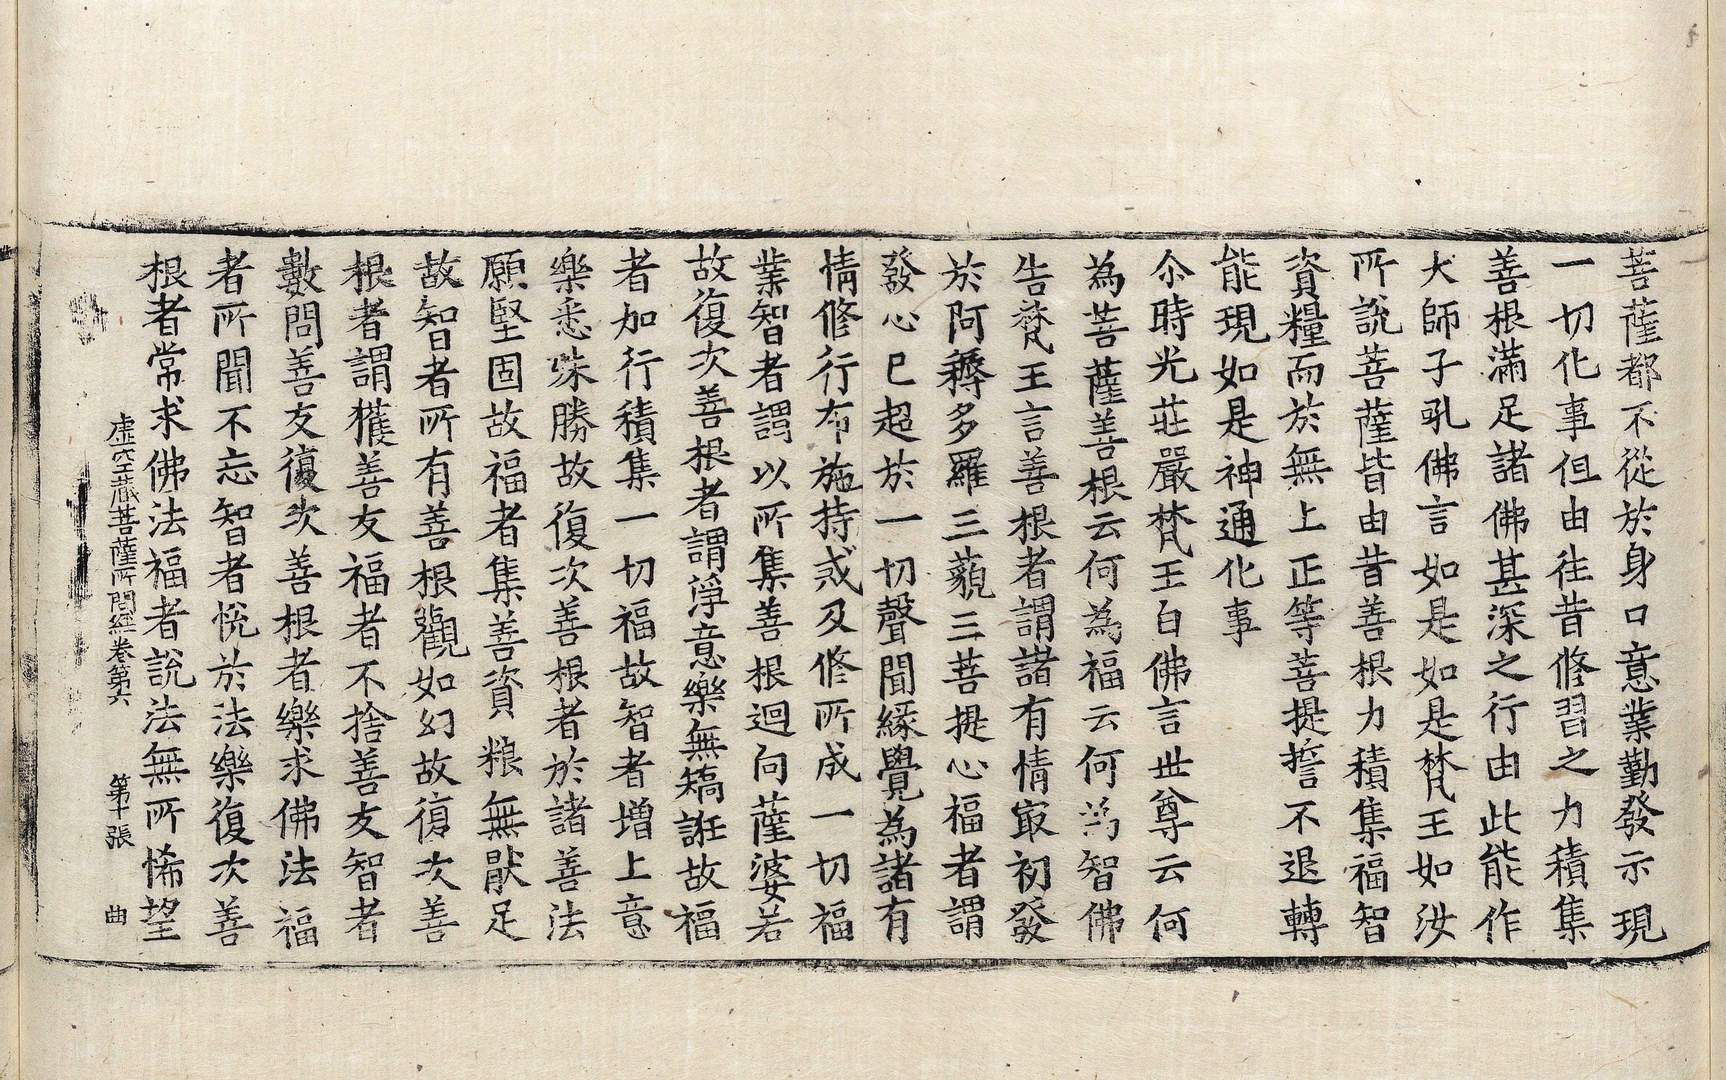 菩薩都不從於身口意業勤發示現
一切化事但由往昔修習之力積集
善根滿足諸佛甚深之行由此能作
大師子吼佛言如是如是梵王如汝
所說菩薩皆由昔善根力積集福智
資糧而於無上正等菩提誓不退轉
能現如是神通化事
尒時光莊嚴梵王白佛言世尊云何
為菩薩善根云何為福云何為智佛
告梵王言善根者謂諸有情㝡初發
於阿耨多羅三藐三菩提心福者謂
發心已超於一切聲聞緣覺為諸有
情修行布施持戒及修所成一切福
業智者謂以所集善根迴向薩婆若
故復次善根者謂淨意樂無矯誑故福
者加行積集一切福故智者增上意
樂悉殊勝故復次善根者於諸善法
願堅固故福者集善資粮無猒足
故智者所有善根觀如幻故復次善
根者謂獲善友福者不捨善友智者
數問善友復次善根者樂求佛法福
者所聞不忘智者悅於法樂復次善
根者常求佛法福者說法無所悕望
虛空藏菩薩所問經卷第六 第十張 曲